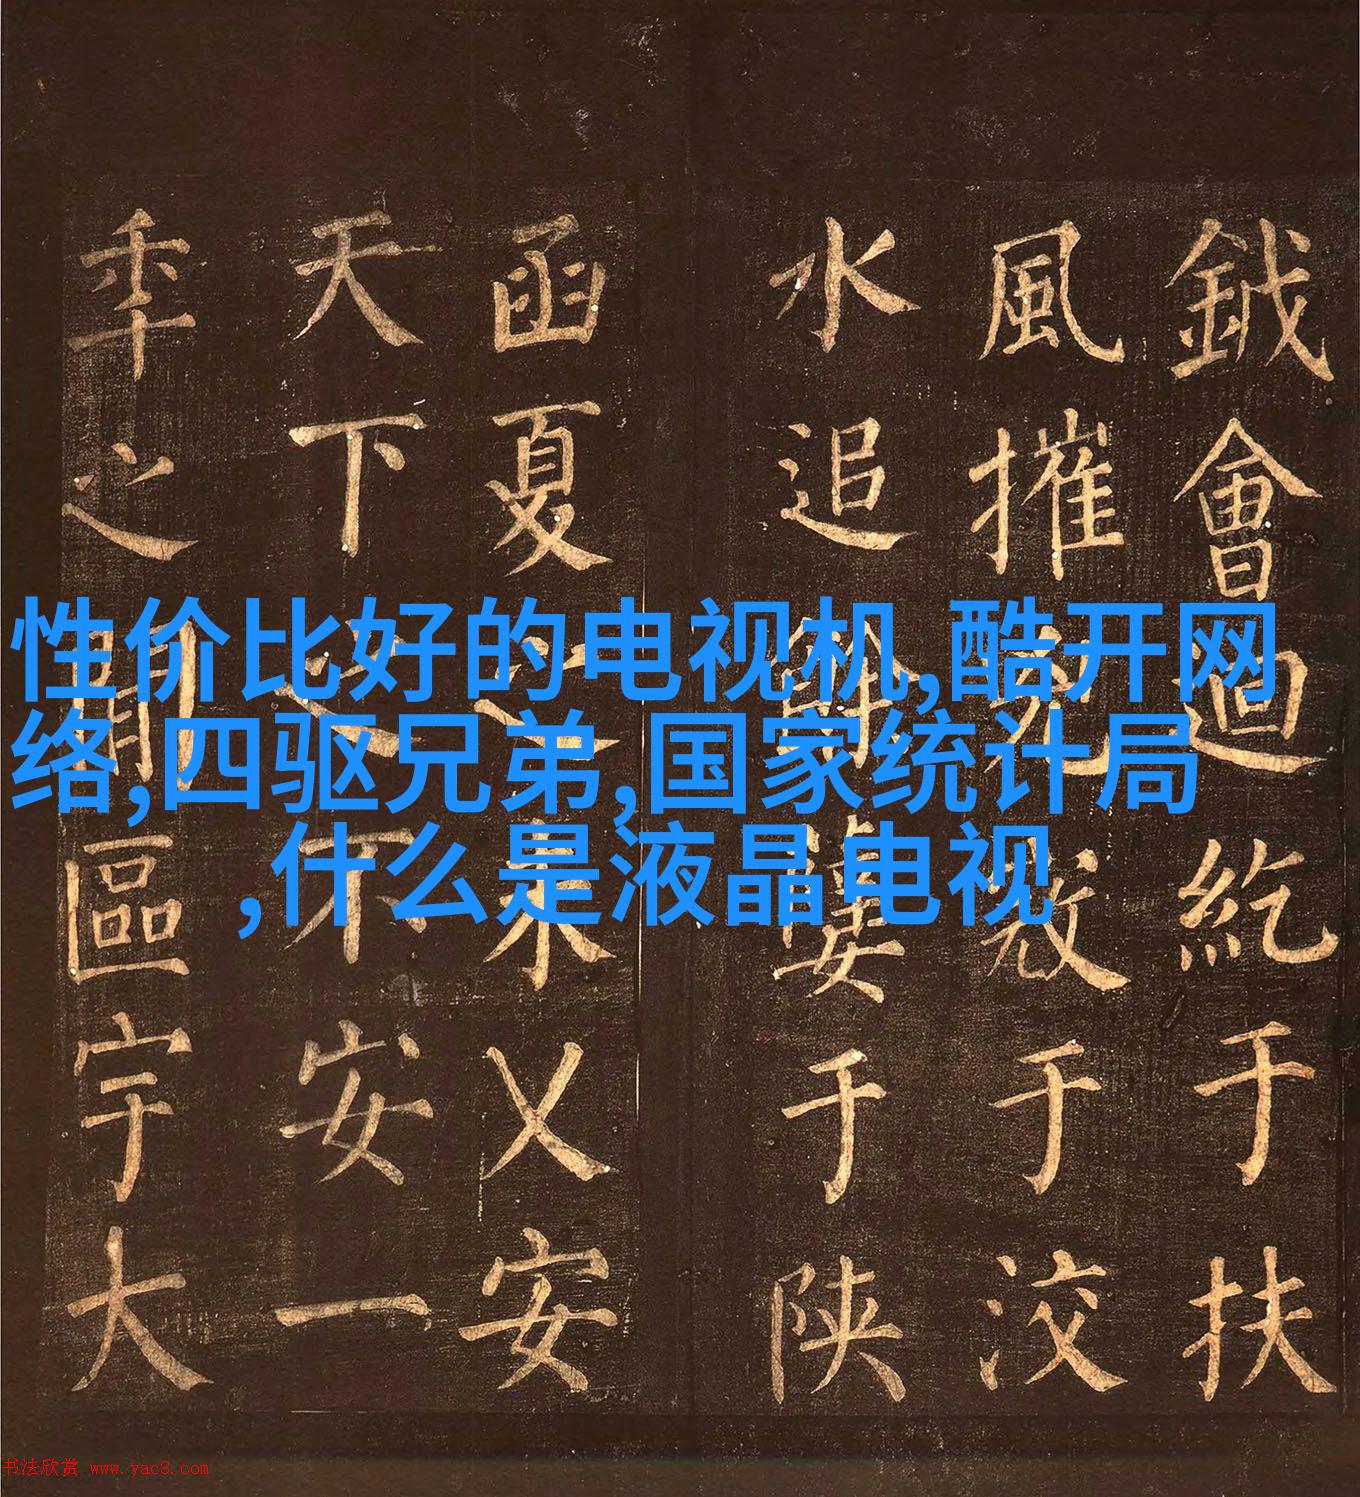 性价比好的电视机,酷开网
络,四驱兄弟,国家统计局
,什么是液晶电视
鉞會迴紇于扶
風摧兇于洨
水追餘于陝
函夏之未乂安
天下之不安一
年之間區宇大
书法欣赏 www.yac8.com